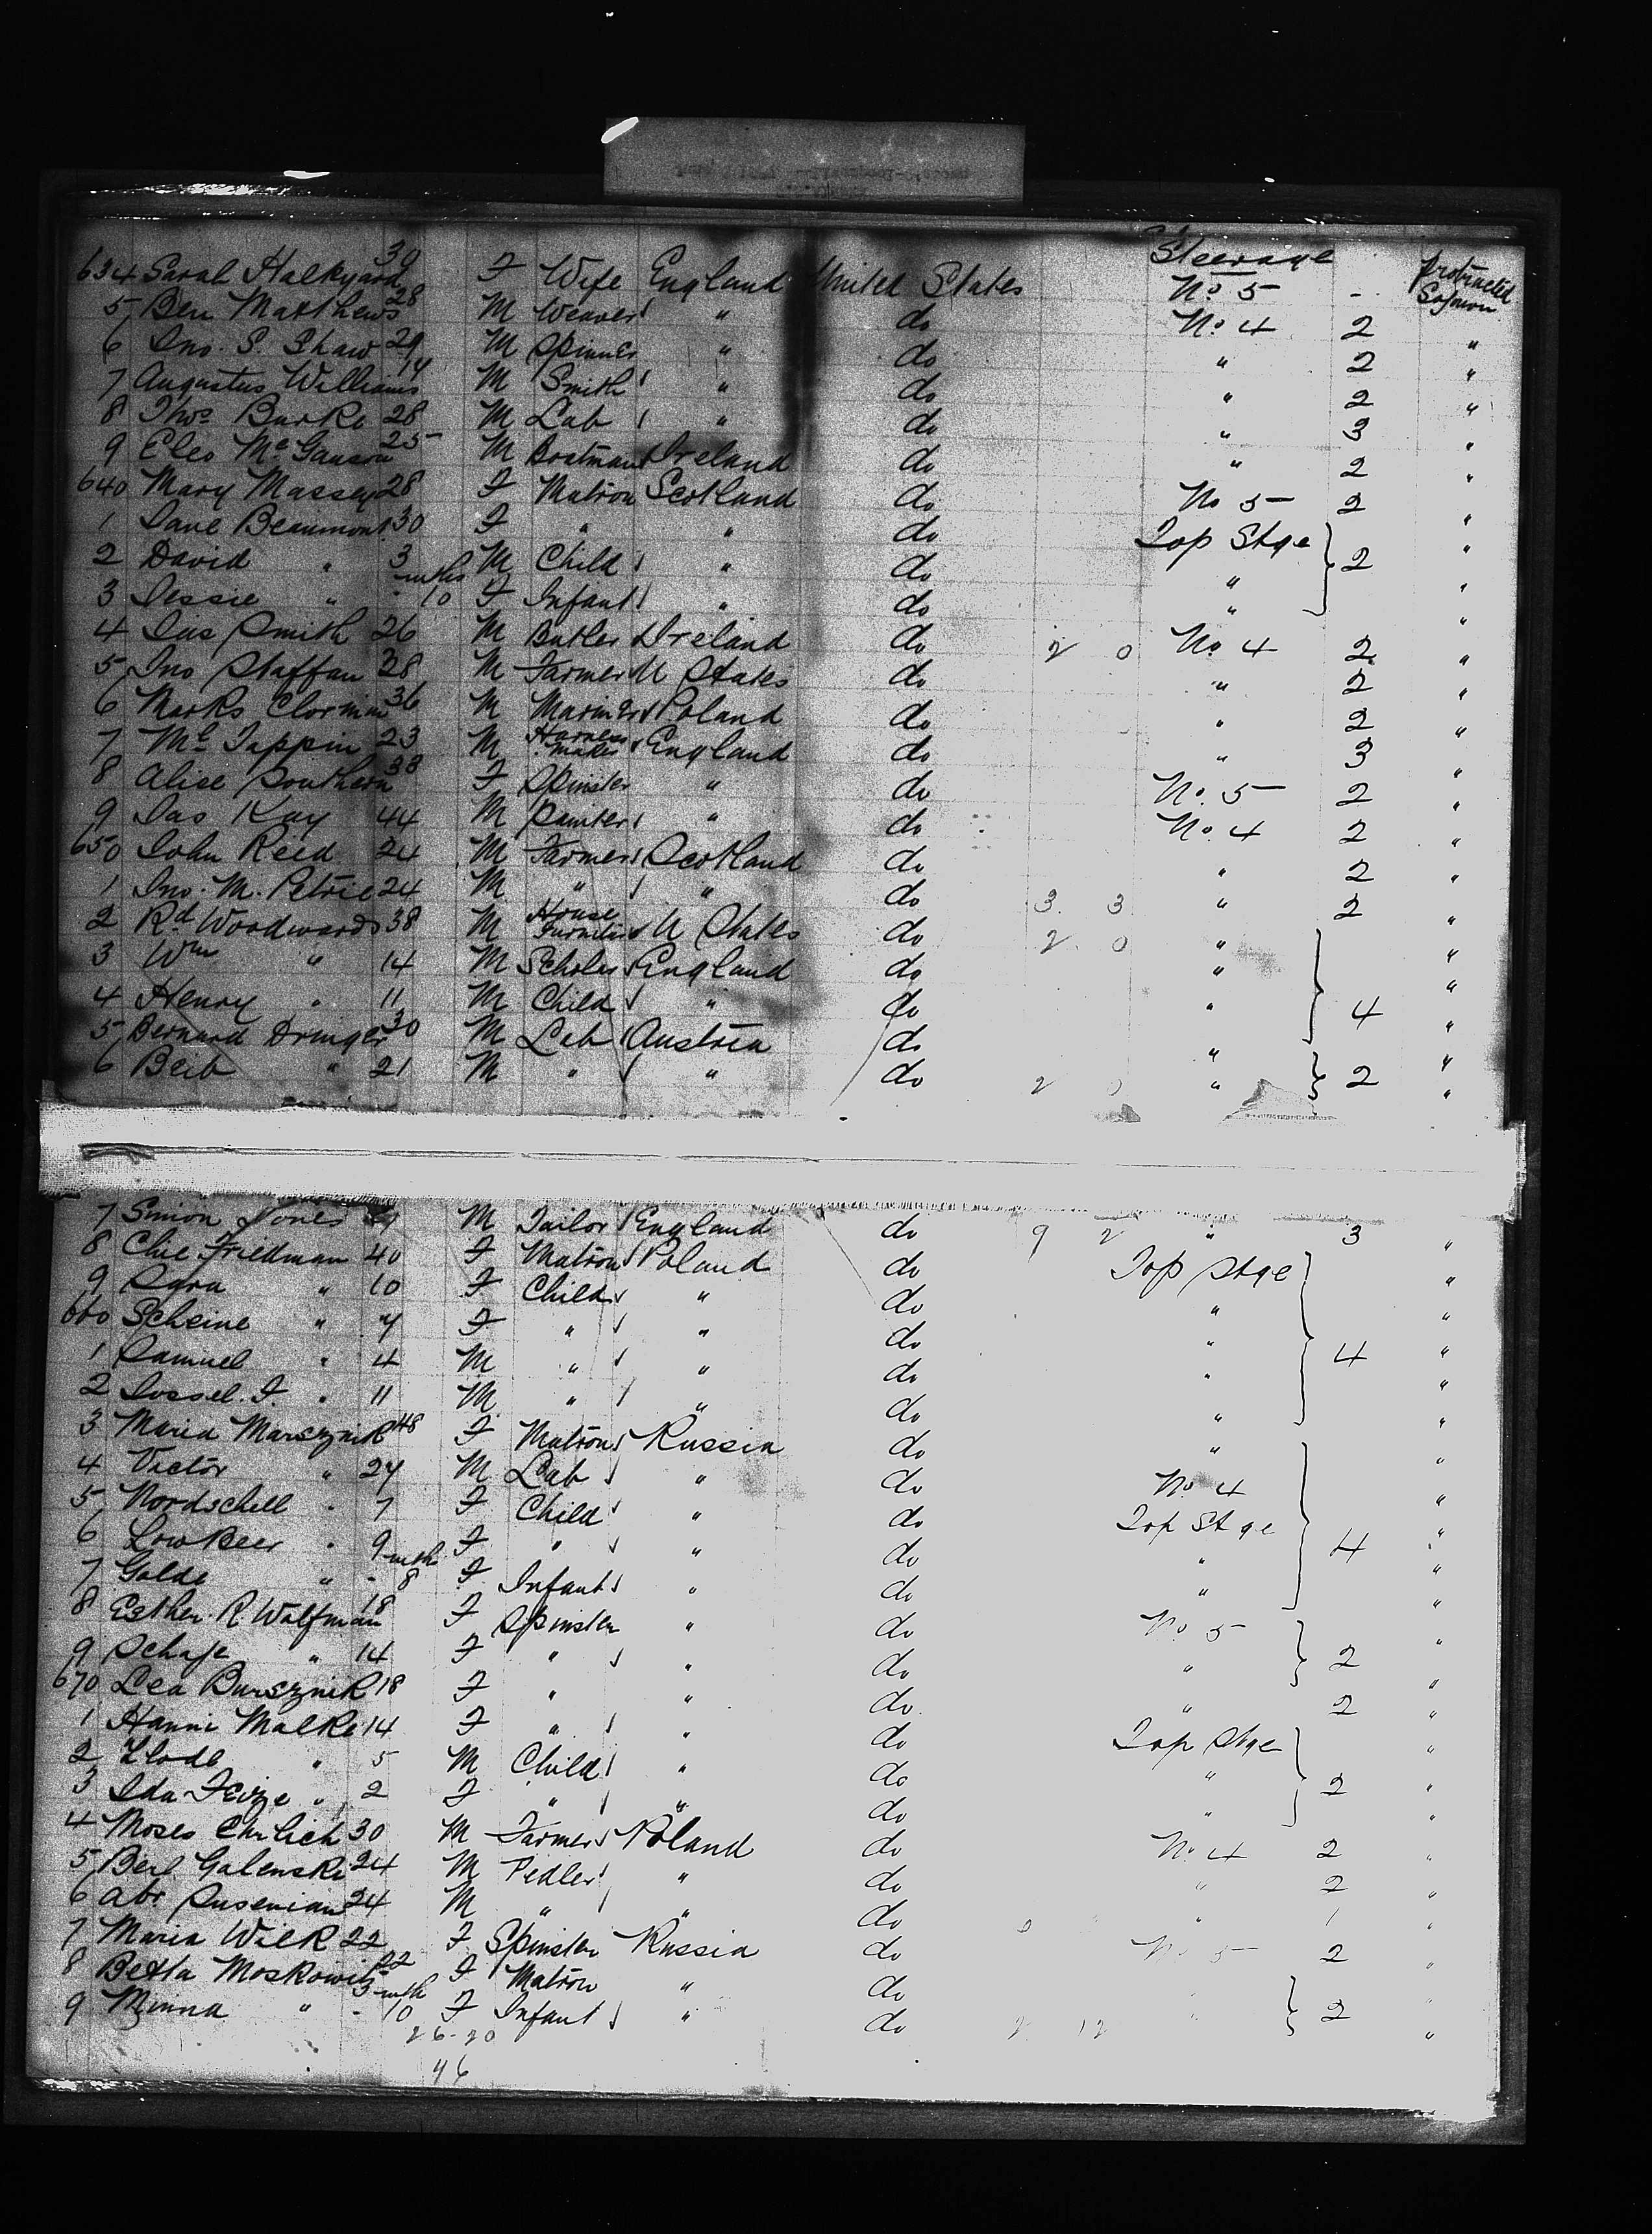 Steerage
634 Sarah Halkyard 30 F Wife England United States No. 5 - Protracted Sojourn
5 Ben Matthews 28 M Weaver " do No. 4 2 "
6 Jno. S. Shaw 29 M Spinner " do " 2 "
7 Augustus Williams 19 M Smith " do " 2 "
8 Thos Burke 28 M Lab " do " 3 "
9 25 M Boatman Ireland do " 2 "
640 Mary Massey 28 F Matron Scotland do No 5 2 "
1 Jane Beaumont 30 F " " do Top Stge 2 "
2 David " 3 M Child " do " "
3 Jessie " - mths 10 F Infant " do " "
4 Jas Smith 26 M Butler Ireland do 2 0 No 4 2 "
5 Jno Staffan 28 M Farmer U States do " 2 "
6 Marks Clorman 36 M Mariner Poland do " 2 "
7 Ml Tappin 23 M Harness Maker England do " 3 "
8 Alice Southern 33 F Spinster " do No. 5 2 "
9 Jas Kay 44 M Painter " do No. 4 2 "
650 John Reed 24 M Farmer Scotland do " 2 "
1 Jno. M. Petrie 24 M " " do 3. 3 " 2 "
2 Rd Woodwards 38 M House Furnitur U States do 2. 0 " "
3 Wm " 14 M Scholar England do " 4 "
4 Henry " 11 M Child " do " "
5 Bernard Dringer 30 M Lab Austria do " 2 "
6 Beib " 21 M " " do 2 " "
7 Simon Jones M Tailor England do 9 2 " 3 "
8 Chie Friedman 40 F Matron Poland do Top Stge "
9 Sara " 10 F Child " do " "
660 Scheine " 7 F " " do " 4 "
1 Samuel " 4 M " " do " "
2 Jossel. F. " 11 M " " do " "
3 Maria Marsznik 48 F Matron Russia do " "
4 Victor " 24 M Lab " do No. 4 "
5 Nordschell " 7 F Child " do Top Stge 4 "
6 " 9 F " " do " "
7 Golde " - mths 8 F Infant " do " "
8 Esther. R. Wolfman 18 F Spinster " do No. 5 2 "
9 Schaje " 14 F " " do " "
670 Lea Bursznik 18 F " " do. " 2 "
1 Hanni Malke 14 F " " do Top Stge "
2 " 5 M Child " do " 2 "
3 Ida Feize " 2 F " " do " "
4 Moses Ehrlich 30 M Farmer Poland do No. 4 2 "
5 Berl Galenski 24 M Pedler " do " 2 "
6 Abr. Susenian 24 M " " do " 1 "
7 Maria Wilk 22 F Spinster Russia do No 5 2 "
8 Betta Moskowitz 22 F Matron " do 2 "
9 Minna " - mth 10 F Infant " do 2 12 " "
26-20
46